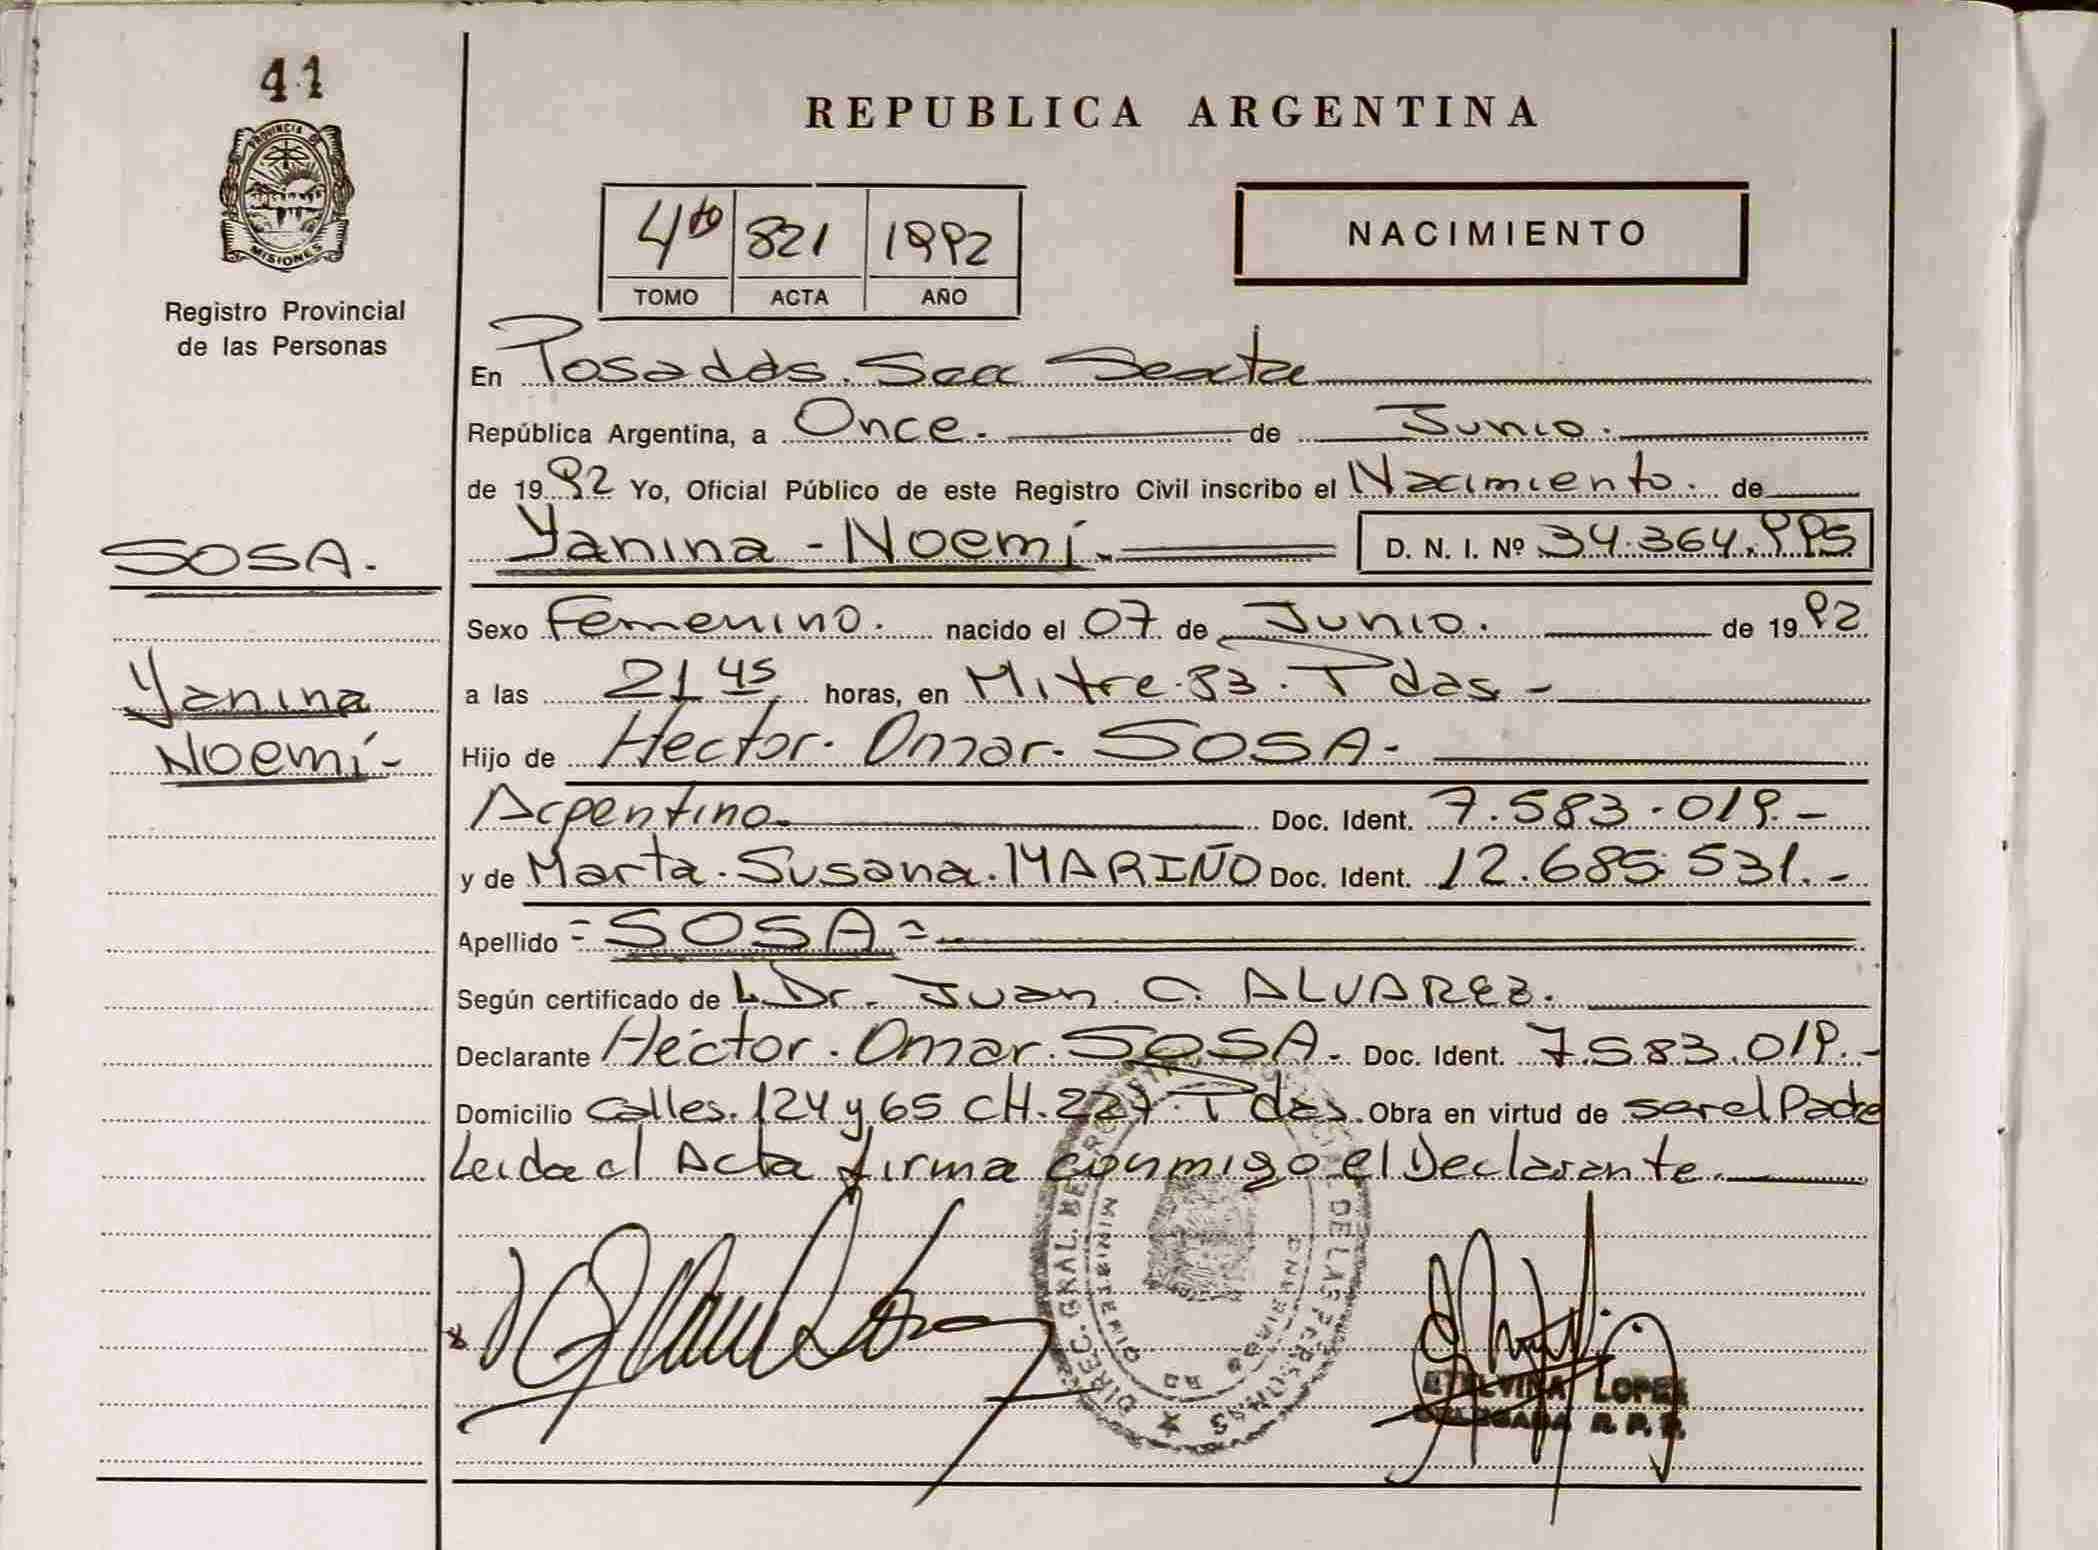 41
PROVINCIA DE
MISIONES
Registro Provincial
de las Personas
REPUBLICA ARGENTINA
4to 821 1992
TOMO ACTA AÑO
NACIMIENTO
En Posadas. Secc Sexta
República Argentina, a Once. de Junio.
de 1992 Yo, Oficial Público de este Registro Civil inscribo el Nacimiento. de
Yanina - Noemí. D. N. I. Nº 34.364.995
SOSA.
Yanina
Noemí-
Sexo Femenino. nacido el 07 de Junio. de 1992
a las 21 45 horas, en Mitre. 83. Pdas -
Hijo de Hector. Omar. SOSA-
Argentino. Doc. Ident. 7.583.019.-
y de Marta. Susana. MARIÑO Doc. Ident. 12.685.531.-
Apellido = SOSA =
Según certificado de L. Dr. Juan C. ALVAREZ.
Declarante Héctor. Omar. SOSA. Doc. Ident. 7.583.019.-
Domicilio Calles. 124 y 65 CH. 227. Pdas. Obra en virtud de ser el Padre
Leida el Acta firma conmigo el Declarante.
DIREC. GRAL. DE LAS PERSONAS
MINISTERIO DE GOBIERNO
ETELVINA LOPEZ
DELEGADA R. P. P.